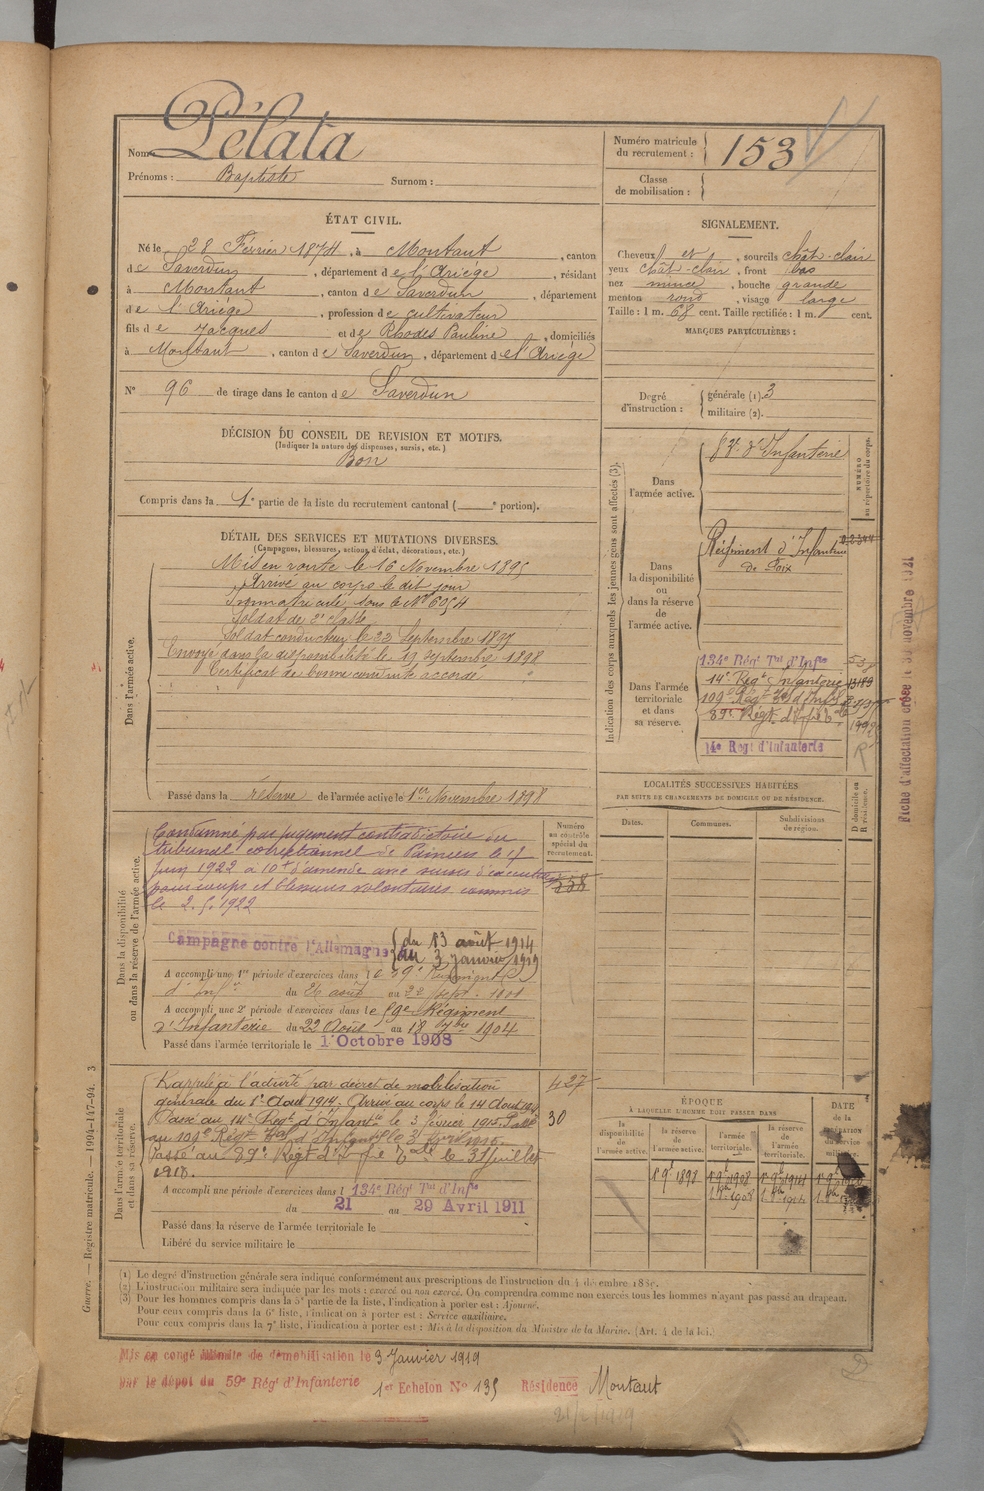 Nom : Pélata
Prénoms : Baptiste Surnom :
Numéro matricule du recrutement : 153
Classe de mobilisation :
ÉTAT CIVIL.
Né le 28 Février 1874, à Montaut, canton
de Saverdun, département de l'Ariège, résidant
à Montaut, canton de Saverdun, département
de l'Ariège, profession de cultivateur
fils de Jacques et de Rhodes Pauline, domiciliés
à Montaut, canton de Saverdun, département de l'Ariège
N° 96 de tirage dans le canton de Saverdun
SIGNALEMENT.
Cheveux et, sourcils chât-clair
yeux chât-clair, front bas
nez mince, bouche grande
menton rond, visage large
Taille : 1 m. 68 cent. Taille rectifiée : 1 m. cent.
MARQUES PARTICULIÈRES :
Degré d'instruction : générale (1). 3
militaire (2).
DÉCISION DU CONSEIL DE REVISION ET MOTIFS.
(Indiquer la nature des dispenses, sursis, etc.)
Bon
Compris dans la 1e partie de la liste du recrutement cantonal ( e portion).
DÉTAIL DES SERVICES ET MUTATIONS DIVERSES.
(Campagnes, blessures, actions d'éclat, décorations, etc.)
Dans l'armée active.
Mis en route le 16 Novembre 1895
Arrivé au corps le dit jour
Immatriculé sous le N° 6054
Soldat de 2e classe
Soldat conducteur le 22 Septembre 1897
Envoyé dans la disponibilité le 19 Septembre 1898
Certificat de bonne conduite accordé
Passé dans la réserve de l'armée active le 1er Novembre 1898
Dans la disponibilité ou dans la réserve de l'armée active.
Condamné par jugement contradictoire du
tribunal correctionnel de Pamiers le
Juin 1922 à 10f d'amende avec sursis d'exécution
pour coups et blessures volontaires commis
le 2.5.1922
Campagne contre l'Allemagne du 13 août 1914
au 3 janvier 1919
A accompli une 1re période d'exercices dans le 59e Régiment
d'Infie du 26 août au 22 Sept. 1901
A accompli une 2e période d'exercices dans le 59e Régiment
d'Infanterie du 22 Août au 18 7bre 1904
Passé dans l'armée territoriale le 1 Octobre 1908
Numéro au contrôle spécial du recrutement.
558
427
30
Dans l'armée territoriale et dans sa réserve.
Rappelé à l'activité par décret de mobilisation
générale du 1er Août 1914. Arrivé au corps le 14 Août 1914
Passé au 14e Régt d'Infantie le 3 février 1915. Passé
au 109e Régt Tal d'Infanterie le
Passé au 89e Régt d'Infie Tale le 31 Juillet
1918.
A accompli une période d'exercices dans l 134e Régt Tal d'Infie
du 21 au 29 Avril 1911
Passé dans la réserve de l'armée territoriale le
Libéré du service militaire le
Indication des corps auxquels les jeunes gens sont affectés (3).
NUMÉRO au répertoire du corps.
Dans l'armée active. d'Infanterie
Dans la disponibilité ou dans la réserve de l'armée active.
Régiment d'Infanterie
de Foix
Dans l'armée territoriale et dans sa réserve.
134e Régt Tal d'Infie
14e Régt Infanterie
109e Régt Tal d'Infie
89e Régt d'Infie
14e Regt d'Infanterie
LOCALITÉS SUCCESSIVES HABITÉES
PAR SUITE DE CHANGEMENTS DE DOMICILE OU DE RÉSIDENCE.
D domicile ou R résidence.
Dates. Communes. Subdivisions de région.
ÉPOQUE
À LAQUELLE L'HOMME DOIT PASSER DANS
DATE de la LIBÉRATION du service militaire.
la disponibilité de l'armée active. la réserve de l'armée active. l'armée territoriale. la réserve de l'armée territoriale.
Fiche d'affectation créée le 30 novembre 1921
Guerre. — Registre matricule. — 1994-147-94. 3
(1) Le degré d'instruction générale sera indiqué conformément aux prescriptions de l'instruction du 4 décembre 1889.
(2) L'instruction militaire sera indiquée par les mots : exercé ou non exercé. On comprendra comme non exercés tous les hommes n'ayant pas passé au drapeau.
(3) Pour les hommes compris dans la 5e partie de la liste, l'indication à porter est : Ajourné.
Pour ceux compris dans la 6e liste, l'indication à porter est : Service auxiliaire.
Pour ceux compris dans la 7e liste, l'indication à porter est : Mis à la disposition du Ministre de la Marine. (Art. 4 de la loi.)
Mis en congé illimité de démobilisation le 3 Janvier 1919
par le dépôt du 59e Régt d'Infanterie 1er Echelon N° 135 Résidence Montaut